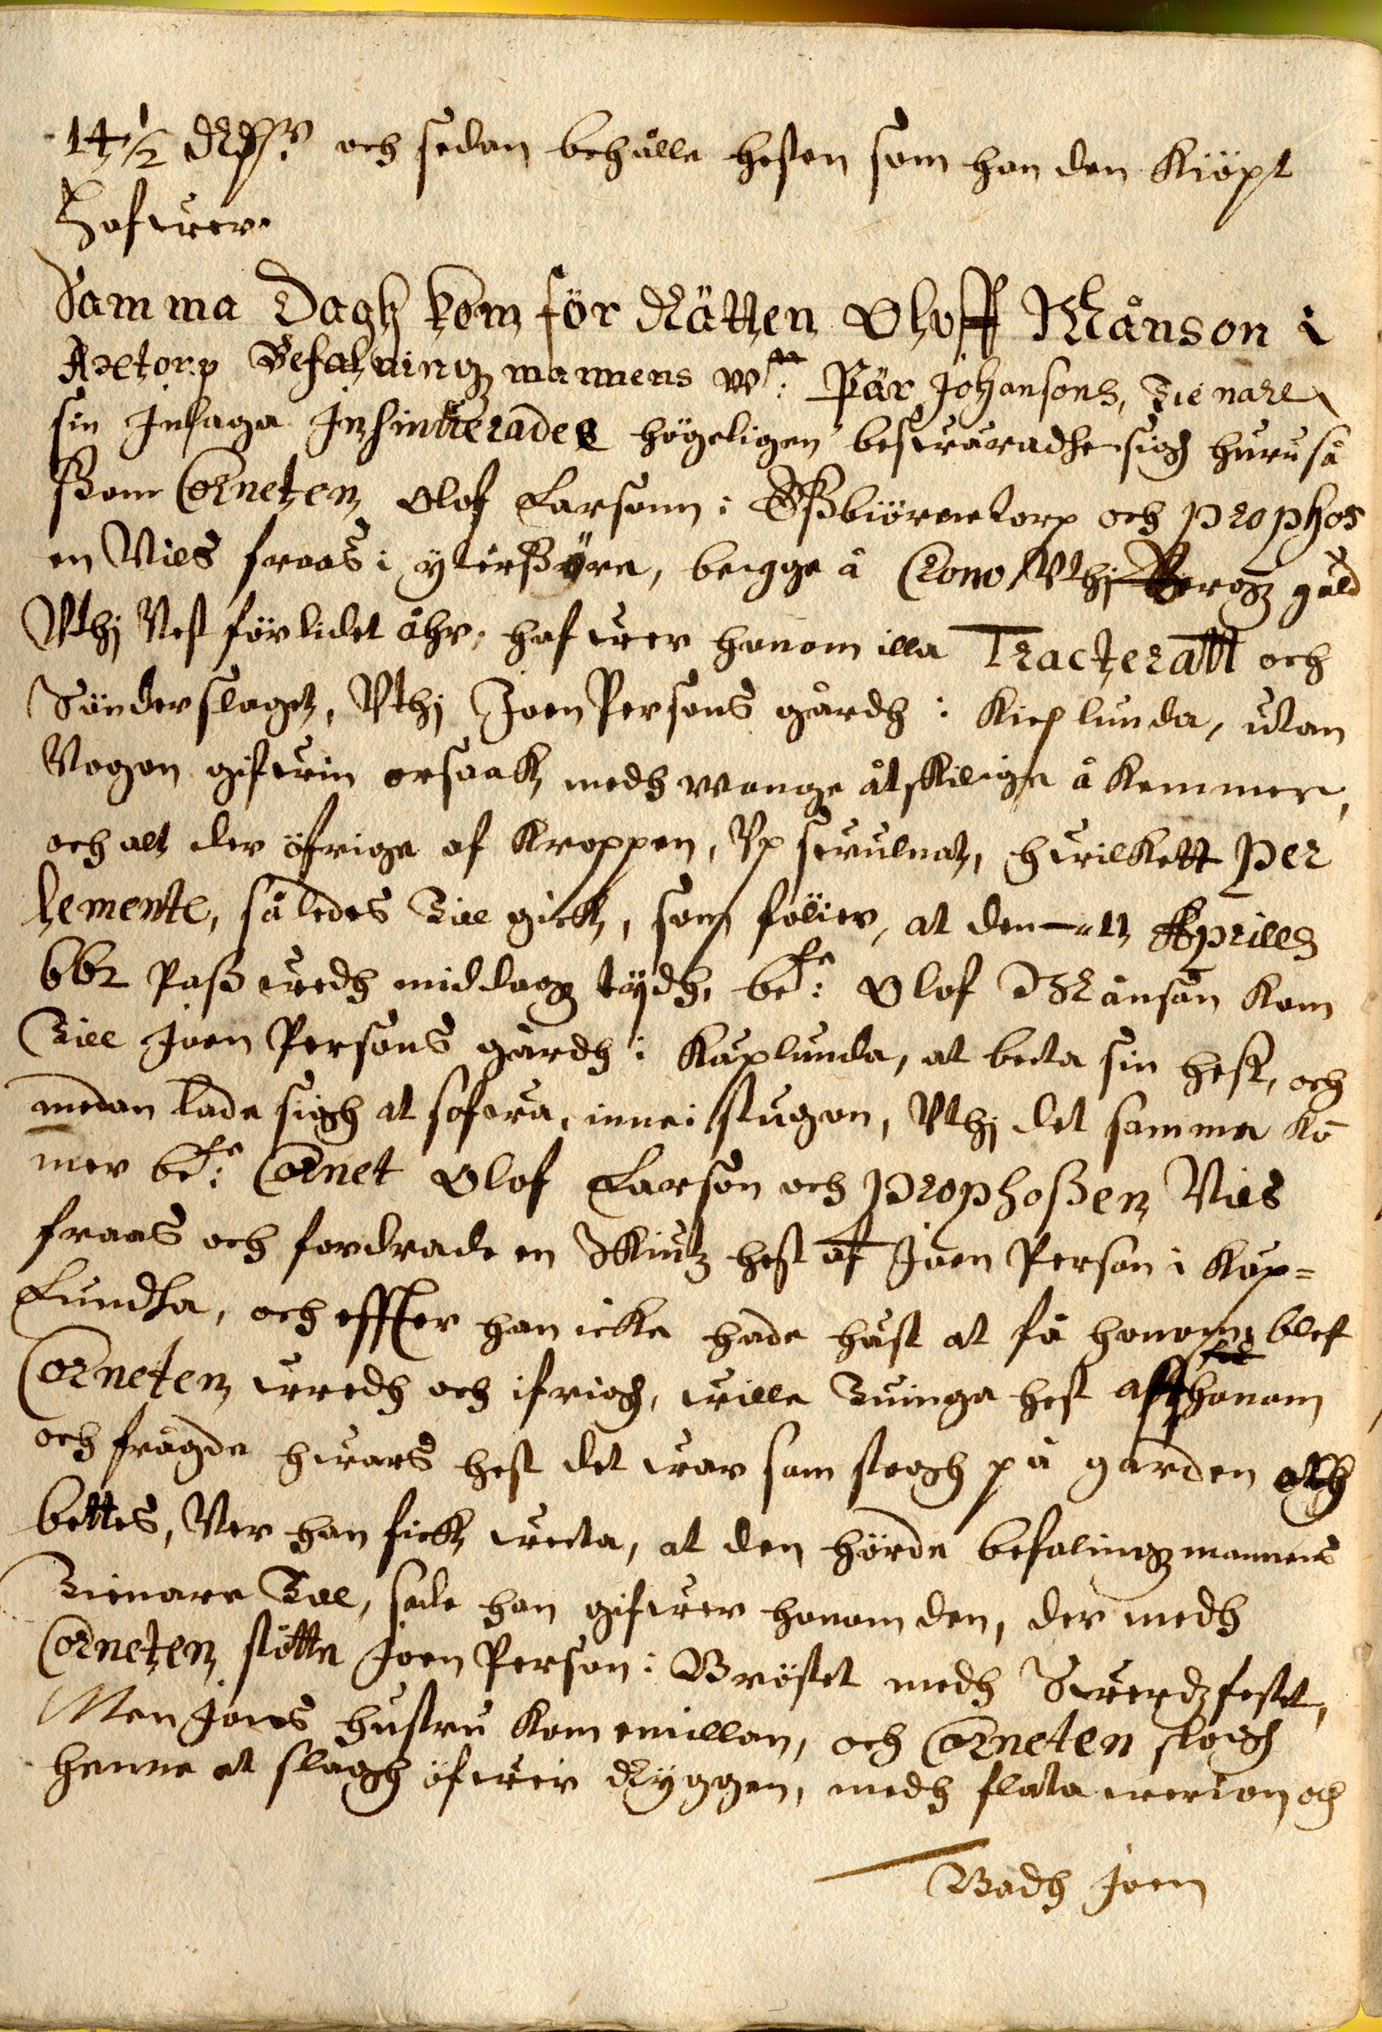 14 1/2 Rdr och sedan behålla hesten som han den kiöpt
hafwer.
Samma Dagh kom för Rätten Oloff Månson i
Aretorp Befalningz mannens W: Pär Johansons, Tienare
sin Inlaga Insinuerades högeligen beswäradhe sigh huruså
ßom Corneten Olof Larsonn i Eßbiörnetorp och prophos
en Nils fraas i ytterßyra, beigge å Crono Vthj Bergz gåld
Vthj Nest förlidet åhr, hafwer honom illa Tracteratt och
Sönderslaget, Vthj Joen Persons gårdh i Kieplunda, utan
Nogon gifwin orsaak, medh mange åtskilige åkommer,
och alt der öfrige af kroppen, Vp swulnat, hwilkett per
lemente, således Till gick, som fölier, at den 11 Aprills
662 Paß wedh middagz tydh, be:te Olof Månson kom
Till Joen Persons gårdh i Käplunda, at beta sin hest, och
medan lade sigh at sofwa, inne i stugon, Vthj det samma ko
mer be:te Cornet Olof Larson och prophoßen Nils
fraas och fordrade en Skiutz hest af Joen Person i Käp=
Lundha, och effter han icke hade häst at få honom, blef
Corneten wredh och ifrigh, wille Twinga hest aff honom
och frågde hwars hest det war som stogh på gården och
bettes, Ner han fick weeta, at den hörde befalingzmannens
Tienare Till, sade han gifwer honom den, der medh
Corneten stötte Joen Person i Bröstet medh Swerdzfestet,
Men Joens hustru kom emillan, och Corneten slogh
henne et slagh öfwer Ryggen, medh flata werion och
Badh Joen